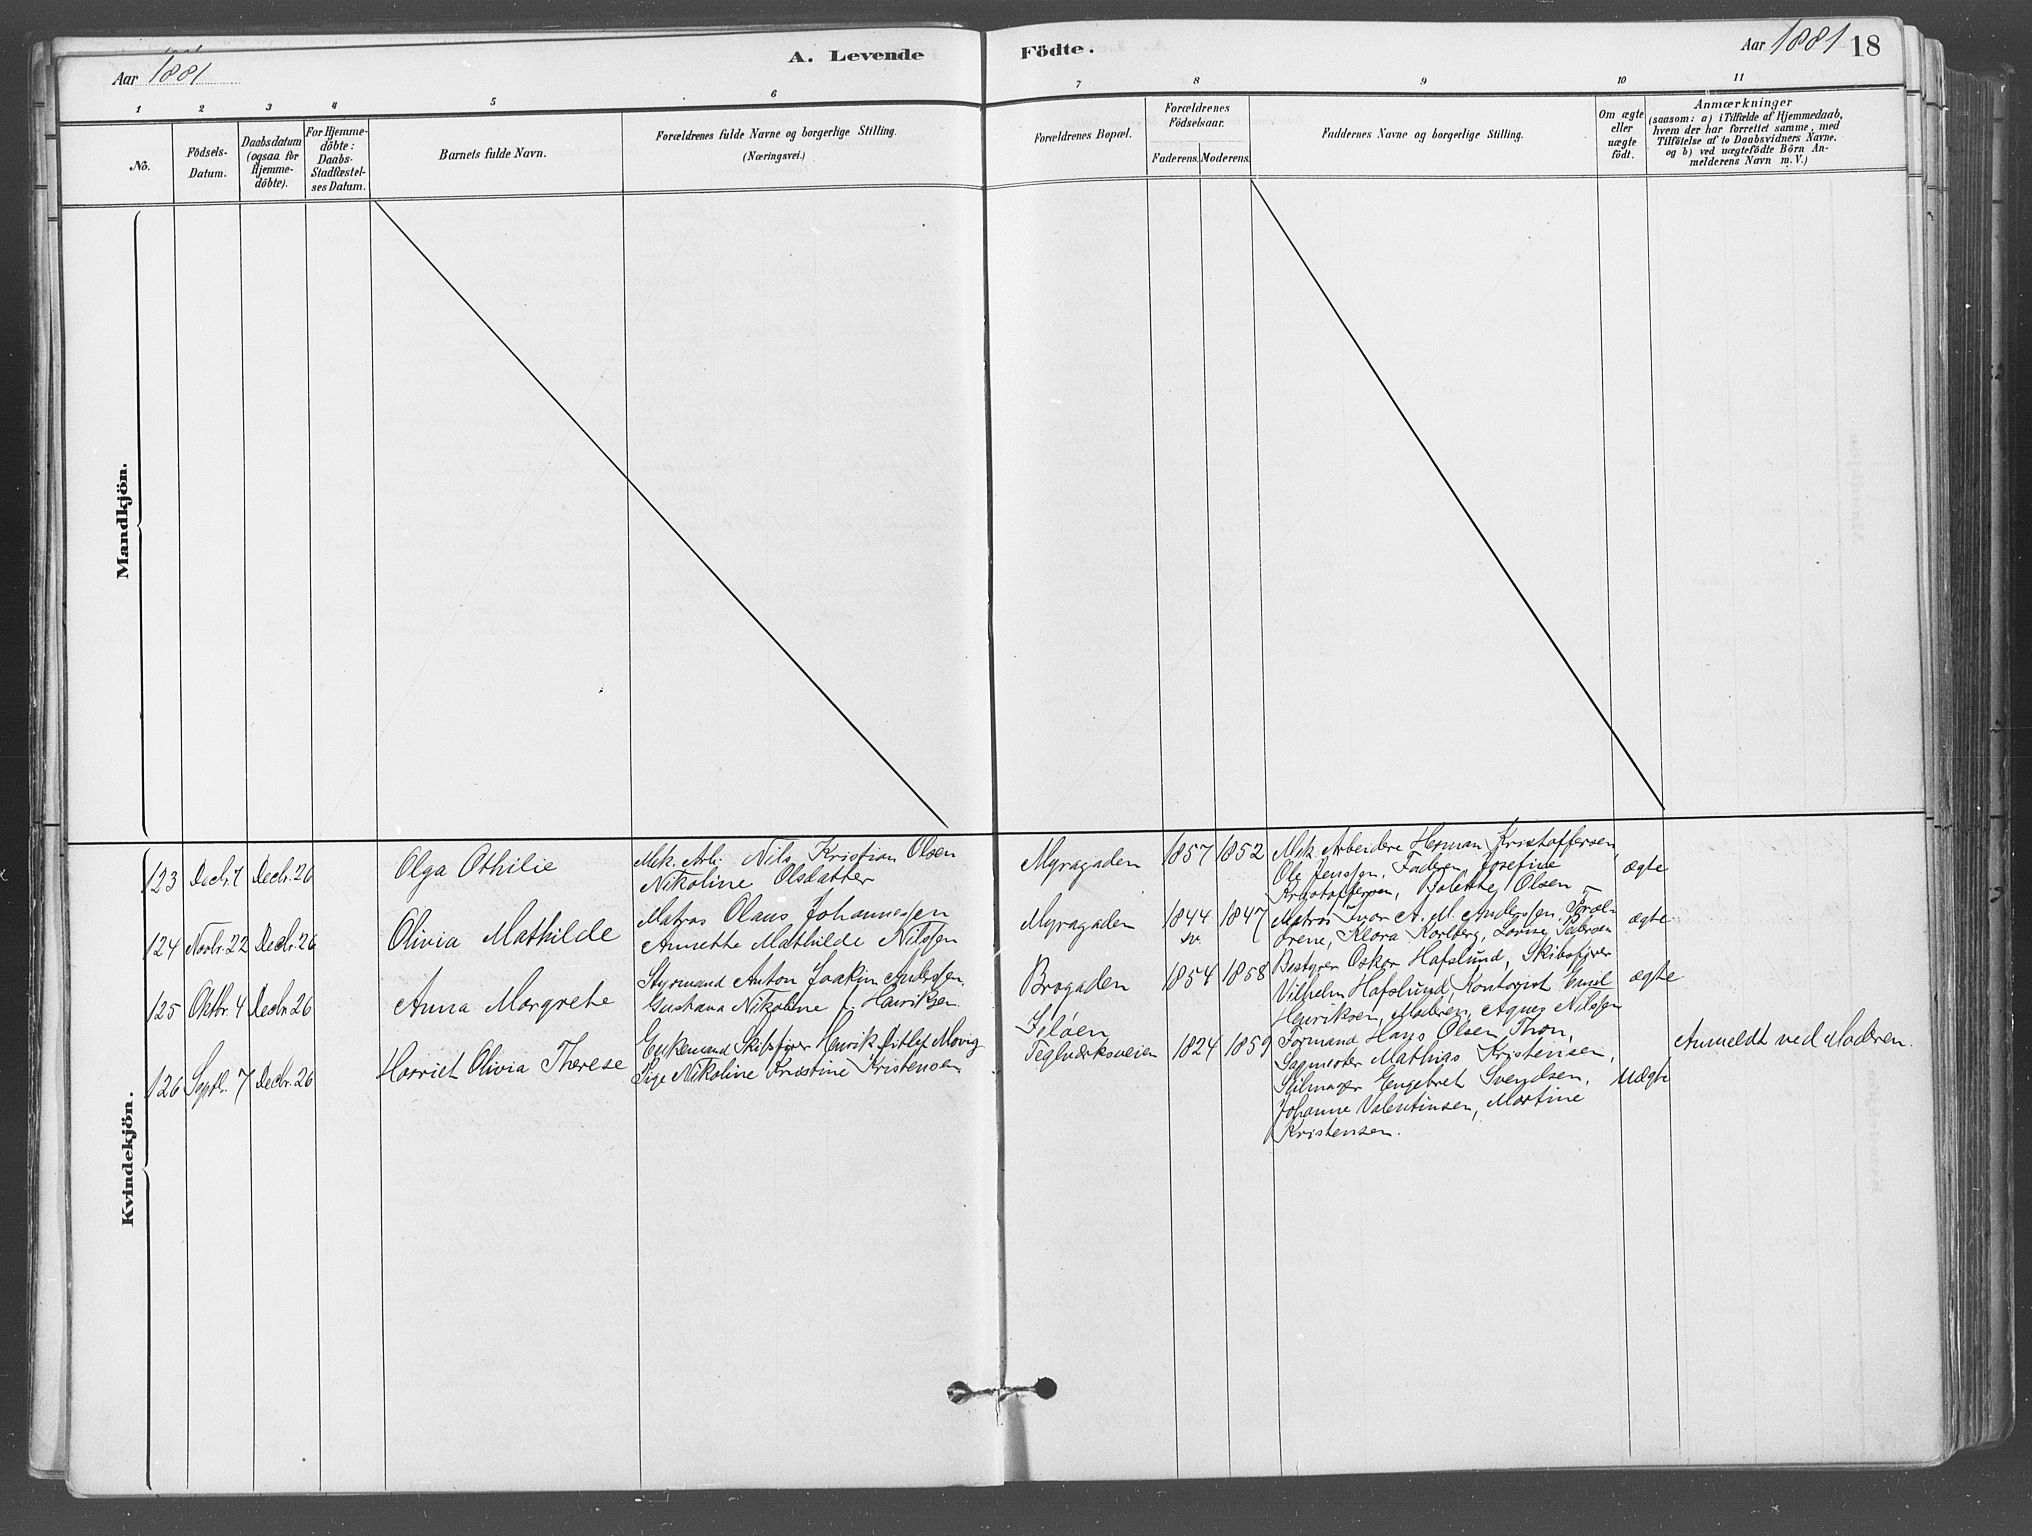 Aar 1881
A. Levende Födte.
Aar 1881 18
1 2 3 4 5 6 7 8 9 10 11
No.
Födsels-
Datum.
Daabsdatum
(ogsaa for
Hjemme-
döbte).
For Hjemme-
döbte:
Daabs-
Stadfæstel-
ses Datum.
Barnets fulde Navn.
Forældrenes fulde Navne og borgerlige Stilling.
(Næringsvei.)
Forældrenes Bopæl.
Forældrenes
Födselsaar.
Faderens. Moderens.
Faddernes Navne og borgerlige Stilling.
Om ægte
eller
uægte
födt.
Anmærkninger
(saasom: a) i Tilfælde af Hjemmedaab,
hvem der har forrettet samme, med
Tilföielse af to Daabsvidners Navne.
og b) ved uægtefödte Börn An-
melderens Navn m. V.)
Mandkjön.
Kvindekjön.
123 Decbr. 1 Decbr. 26
Olga Othilie
Mek. Arb. Nils Kristian Olsen
Nikoline Olsdatter
Myragaden
1857 1852
Mek Arbeidere Herman Kristoffersen,
Ole Jenssen, Faderen, Josefine
Kristoffersen, Bolette Olsen
ægte
124 Novbr. 22 Decbr. 26
Olivia Mathilde
Matros Olaus Johannessen
Annette Mathilde Nilssen
Myragaden
1844 1847
sv.
Matros Ivar A. M. Anderssen,
Irene, Klara Karlberg, Lovise Pedersen
ægte
125 Oktbr. 4 Decbr. 26
Anna Margrethe
Styrmand Anton Joakim Anderssen
Gustava Nikoline f. Henriksen.
Brogaden
1854 1858
Bestyrer Oskar Hafslund, Skibsfører
Vilhelm Hafslund, Kontorist Emil
Henriksen, Moderen, Agnes Nilssen
ægte
126 Septbr. 7 Decbr. 26
Harriet Olivia Therese
Enkemand Skibsfører Henrik Ditlef Movig
Pige Nikoline Kristine Kristensen
Jeløen
Teglværksveien
1824 1859
Formand Hans Olsen Thon,
Sagmester Mathias Kristensen,
Seilmager Engebret Svendsen,
Johanne Valentinsen, Martine
Kristensen.
Uægte
Anmeldt ved Moderen.